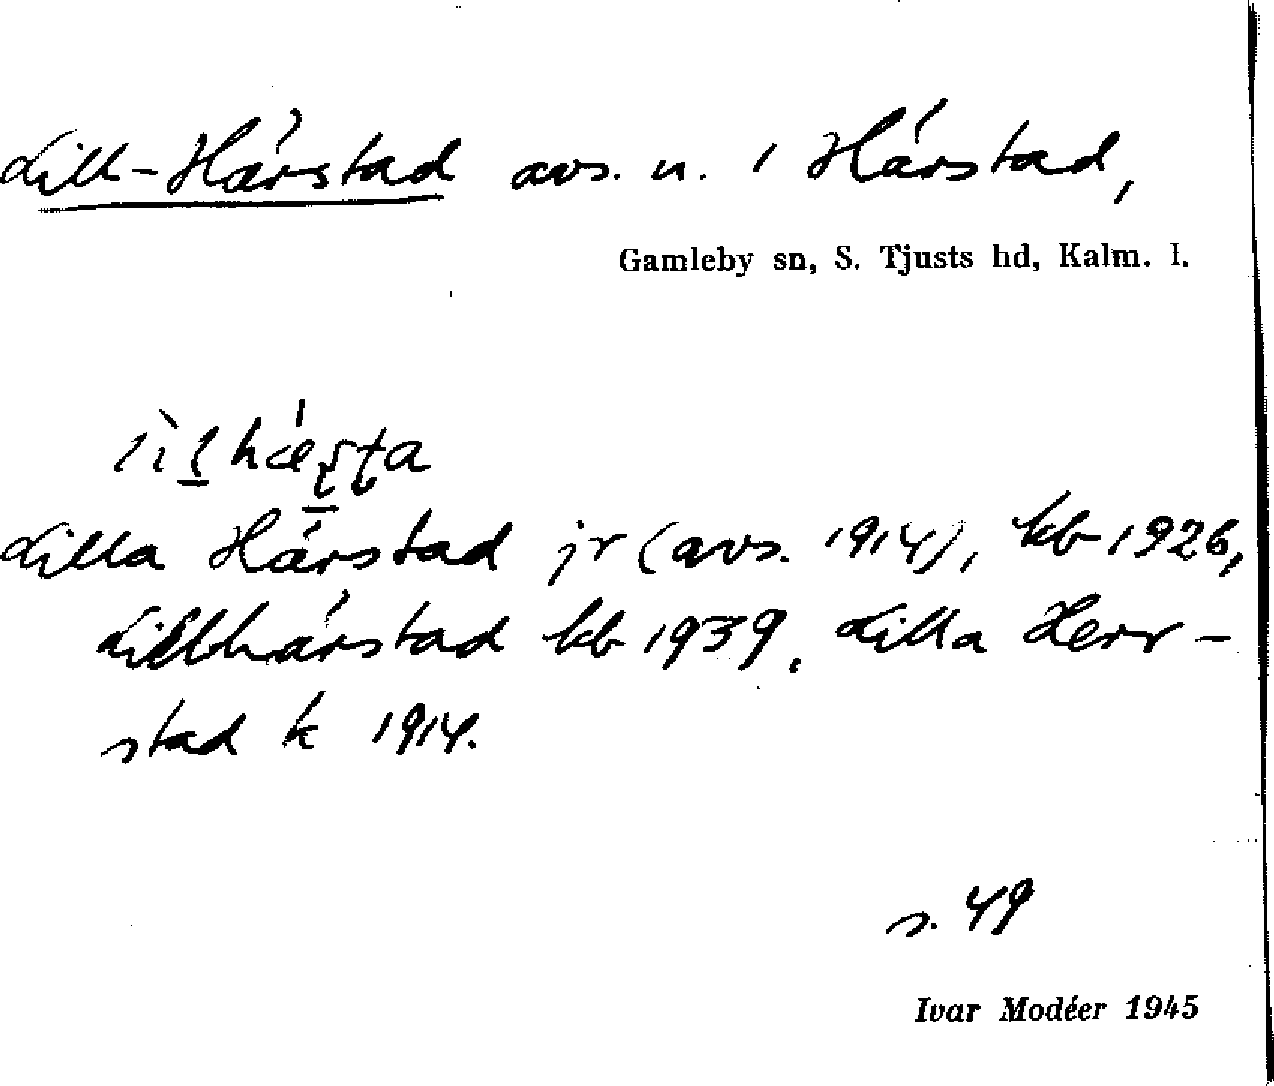 Lill-Hårstad avs. u. i Hårstad,
Gamleby sn, S. Tjusts hd, Kalm. l.
Lilla Hårstad jr (avs. 1914), kb 1926,
Lillhårstad kb 1939. Lilla Herr-
stad k 1914.
s. 49
Ivar Modéer 1945